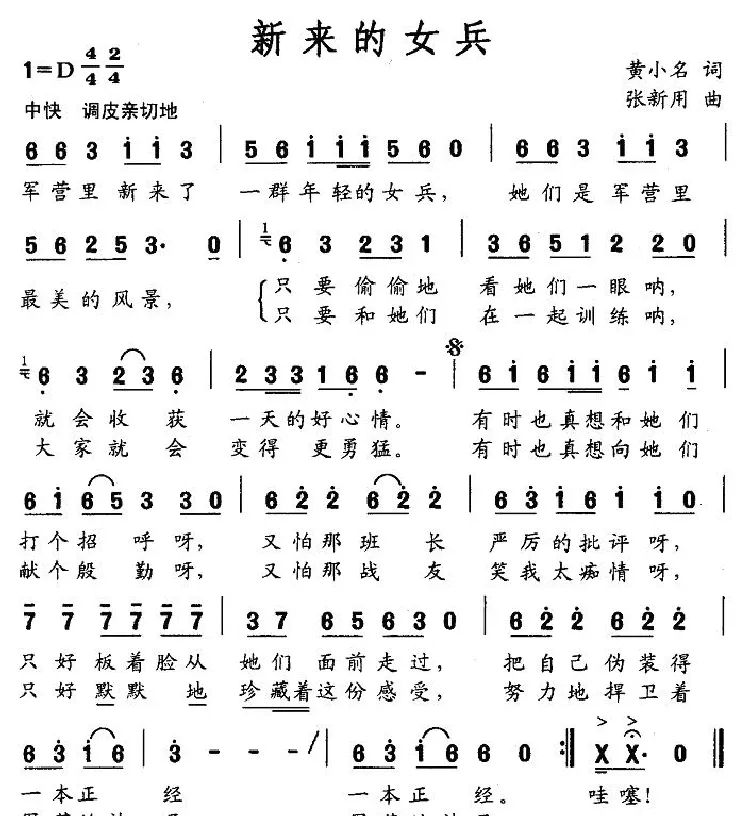 新来的女兵
1=D 4/4 2/4
黄小名 词
中快 调皮亲切地
张新用 曲
6 6 3 i i 3 | 5 6 i i i 5 6 0 | 6 6 3 i i 3
军营里 新来了 一群年轻的女兵, 她们是 军营里
5 6 2 5 3· 0 | 6 3 2 3 1 | 3 6 5 1 2 2 0
最美的风景, 只要偷偷地 看她们一眼呐,
只要和她们 在一起训练呐,
6 3 2 3 6 | 2 3 3 1 6 6 - | 6 i 6 i i 6 i i
就会收获 一天的好心情。 有时也真想和她们
大家就会 变得 更勇猛。 有时也真想向她们
6 i 6 5 3 3 0 | 6 2 2 6 2 2 | 6 3 i 6 i i 0
打个招 呼呀, 又怕那班 长 严厉的批评呀,
献个殷 勤呀, 又怕那战 友 笑我太痴情呀,
7 7 7 7 7 7 | 3 7 6 5 6 3 0 | 6 2 2 6 2 2
只好板着脸从 她们 面前走过, 把自己伪装得
只好默默 地 珍藏着这份感受, 努力地捍卫着
6 3 i 6 | 3 - - - / | 6 3 i 6 6 0 :| X X· 0 ‖
一本正 经 一本正 经。 哇噻!